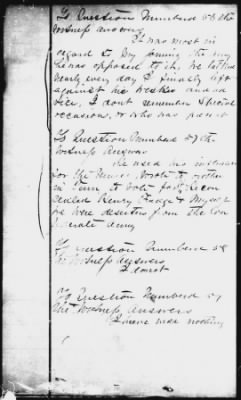 To Question Numberd 56 the
witness answers
It was most in
regard to my joining the army
he was opposed to it. We talked
nearly every day I finaly left
against his wishes and ad
vice, I dont remember Special
occasion, or who was present
To Question Numberd 57 the
witness Answers
He used his influence
for the Union, wrote to mother
in Tenn to vote for
called Henry and Myself
he were deserters from the Con
federate army
To Question Numberd 58
the witness Answers
I do not
To Question Numberd 59
the Witness answers
I know nothing